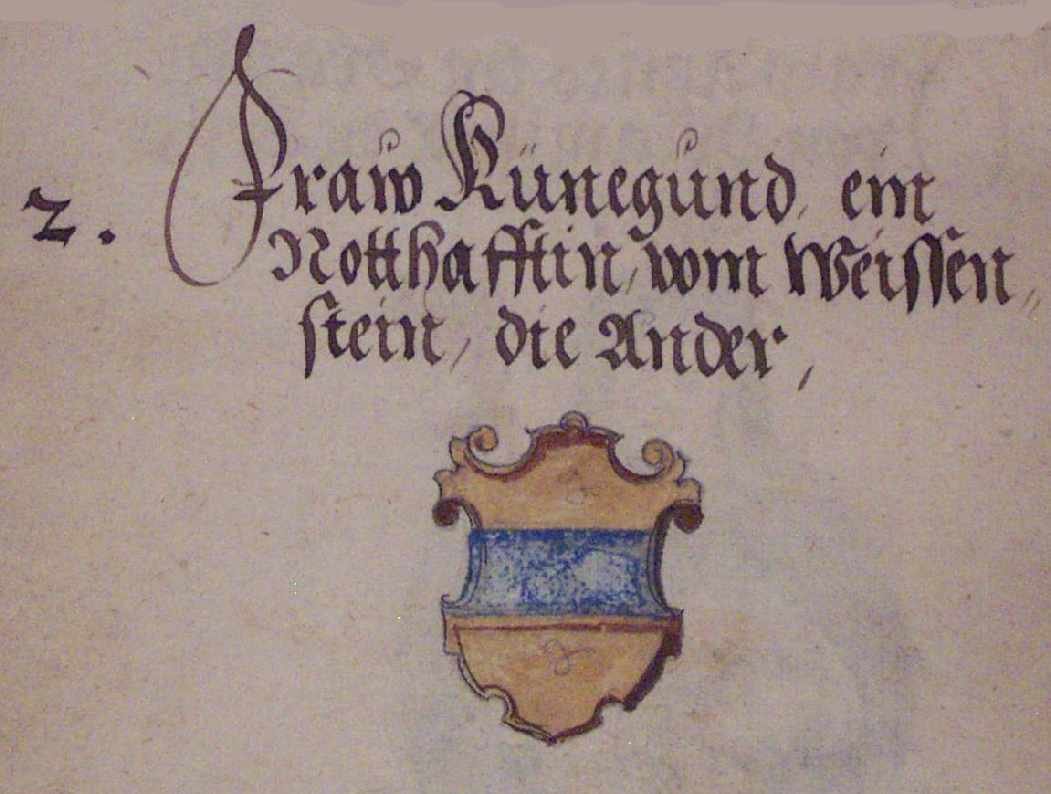 2. Fraw Künegund, ein
Notthafftin, vom Weissen„
stein, die Ander,